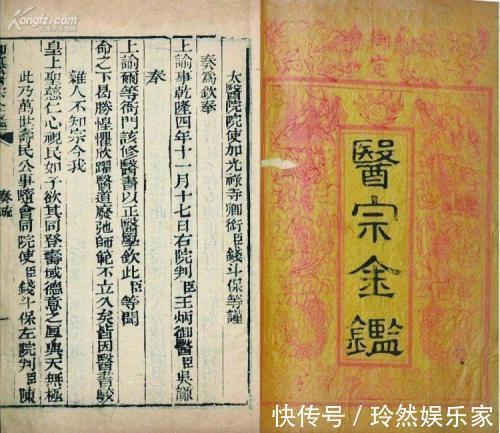 醫宗金鑑
太醫院院使加光祿寺卿銜臣錢斗保等謹
奏爲欽奉
上諭事乾隆四年十一月十七日右院判臣王炳御醫臣吳謙
奉
上諭爾等衙門該修醫書以正醫學欽此臣等聞
命之下曷勝惶懼欣躍醫道廢弛師範不立久矣皆因醫書駁
雜人不知宗今我
皇上聖慈仁心視民如子欲其同登壽域德意之厚與天無極
此乃萬世壽民公事隨會同院使臣錢斗保左院判臣陳
奏疏
快传号／玲然娱乐家